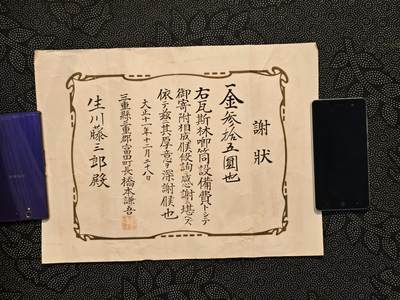 謝狀
一金參拾五圓也
右瓦斯林喞筒設備費トシテ
御寄附相成候段洵感謝ニ堪ヘス
依テ茲ニ其厚意ヲ深謝候也
大正十一年十二月二十八日
三重縣三重郡富田町長橋本謙吾
生川藤三郎殿